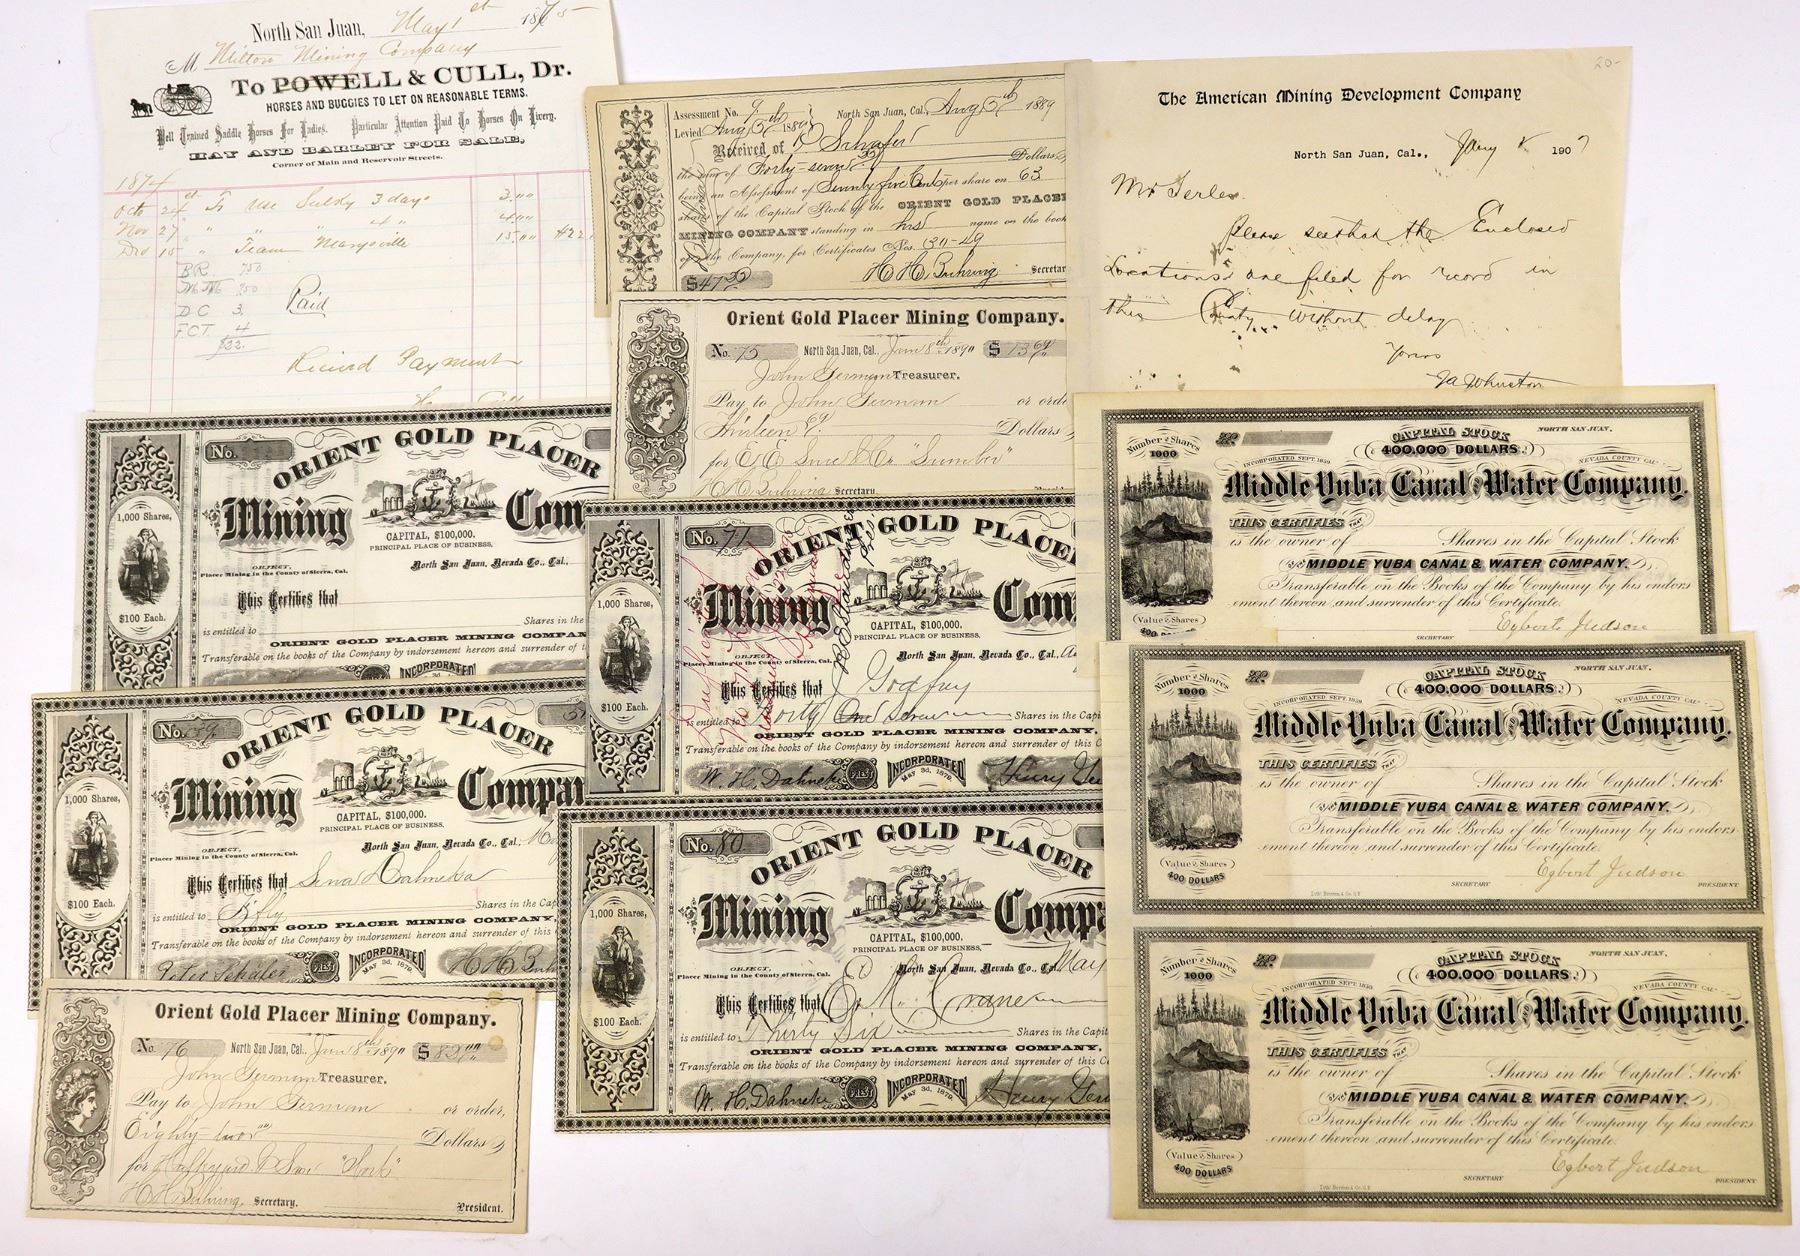 North San Juan, May 1st 1875
M Milton Mining Company
To POWELL & CULL, Dr.
HORSES AND BUGGIES TO LET ON REASONABLE TERMS.
Well Trained Saddle Horses For Ladies. Particular Attention Paid To Horses On Livery.
HAY AND BARLEY FOR SALE,
Corner of Main and Reservoir Streets.
1874
Oct 24 To Use Sulky 3 days 3.00
Nov 27 " " " 4 " 4.00
Dec 15 " Team Marysville 15.00 $22
BR 7.50
M M 7.50
D C 3.
F.C.T. 4
$22.
Paid
Received Payment
Assessment No. 9th North San Juan, Cal., Aug 5th 1889
Levied Aug 5th 1889
Received of P Schafer
the sum of Forty-seven Dollars
being an Assessment of Seventy five Cents per share on 63
shares of the Capital Stock of the ORIENT GOLD PLACER
MINING COMPANY standing in his name on the books
of the Company, for Certificates Nos. 30-49
$47 H H Buhring Secretary
The American Mining Development Company
20-
North San Juan, Cal., Jany 8 1907
Mr
Please see that the Enclosed
Locations are filed for record in
this County without delay
Yours
JA Johnston
Orient Gold Placer Mining Company.
No. 75 North San Juan, Cal., Jan 8th 1890 $13 69
John German Treasurer.
Pay to John German or order
Thirteen 69 Dollars
for "Lumber"
H H Buhring Secretary.
ORIENT GOLD PLACER
No.
Mining Com
1,000 Shares,
$100 Each.
CAPITAL, $100,000.
PRINCIPAL PLACE OF BUSINESS,
OBJECT,
Placer Mining in the County of Sierra, Cal.
North San Juan, Nevada Co., Cal.
This Certifies that
is entitled to Shares in the
ORIENT GOLD PLACER MINING COMPAN
Transferable on the books of the Company by indorsement hereon and surrender of t
INCORPORATED
No. 71
ORIENT GOLD PLACER
Mining Com
1,000 Shares,
$100 Each.
CAPITAL, $100,000.
PRINCIPAL PLACE OF BUSINESS,
OBJECT,
Placer Mining in the County of Sierra, Cal.
North San Juan, Nevada Co., Cal.
This Certifies that J Godfrey
is entitled to Forty One Shares in the Capi
ORIENT GOLD PLACER MINING COMPANY,
Transferable on the books of the Company by indorsement hereon and surrender of this C
W. H. Dahneke PREST INCORPORATED
May 3d, 1878.
No.
ORIENT GOLD PLACER
Mining Compa
1,000 Shares,
$100 Each.
CAPITAL, $100,000.
PRINCIPAL PLACE OF BUSINESS.
OBJECT,
Placer Mining in the County of Sierra, Cal.
North San Juan, Nevada Co., Cal.,
This Certifies that Dahneke
is entitled to Fifty Shares in the Cap
ORIENT GOLD PLACER MINING COMPANY,
Transferable on the books of the Company by indorsement hereon and surrender of this
Peter Schafer PREST INCORPORATED H H Buh
May 3d, 1878.
No. 80
ORIENT GOLD PLACER
Mining Compa
1,000 Shares,
$100 Each.
CAPITAL, $100,000.
PRINCIPAL PLACE OF BUSINESS,
OBJECT,
Placer Mining in the County of Sierra, Cal.
North San Juan, Nevada Co., Cal. May
This Certifies that E. M. Crane
is entitled to Thirty Six Shares in the Capit
ORIENT GOLD PLACER MINING COMPANY,
Transferable on the books of the Company by indorsement hereon and surrender of this Ce
W. H. Dahneke PREST INCORPORATED Henry Ger
May 3d, 1878.
Orient Gold Placer Mining Company.
No. 76 North San Juan, Cal., Jan 8th 1890 $82.00
John German Treasurer.
Pay to John German or order,
Eighty-two Dollars
for "Work"
H H Buhring, Secretary. President.
Number of Shares
1000
No
CAPITAL STOCK NORTH SAN JUAN.
400,000 DOLLARS
INCORPORATED SEPT. 1859 NEVADA COUNTY CAL.
Middle Yuba Canal and Water Company.
THIS CERTIFIES THAT
is the owner of Shares in the Capital Stock
of the MIDDLE YUBA CANAL & WATER COMPANY.
Transferable on the Books of the Company by his endors-
ement thereon, and surrender of this Certificate.
(Value of Shares)
400 DOLLARS
SECRETARY Egbert Judson
Number of Shares
1000
No
CAPITAL STOCK NORTH SAN JUAN.
400,000 DOLLARS
INCORPORATED SEPT. 1859 NEVADA COUNTY CAL.
Middle Yuba Canal and Water Company.
THIS CERTIFIES THAT
is the owner of Shares in the Capital Stock
of the MIDDLE YUBA CANAL & WATER COMPANY.
Transferable on the Books of the Company by his endors-
ement thereon, and surrender of this Certificate.
(Value of Shares)
400 DOLLARS
SECRETARY Egbert Judson PRESIDENT
Number of Shares
1000
No
CAPITAL STOCK NORTH SAN JUAN.
400,000 DOLLARS
INCORPORATED SEPT. 1859 NEVADA COUNTY CAL.
Middle Yuba Canal and Water Company.
THIS CERTIFIES THAT
is the owner of Shares in the Capital Stock
of the MIDDLE YUBA CANAL & WATER COMPANY.
Transferable on the Books of the Company by his endors-
ement thereon, and surrender of this Certificate.
(Value of Shares)
400 DOLLARS
SECRETARY Egbert Judson PRESIDENT